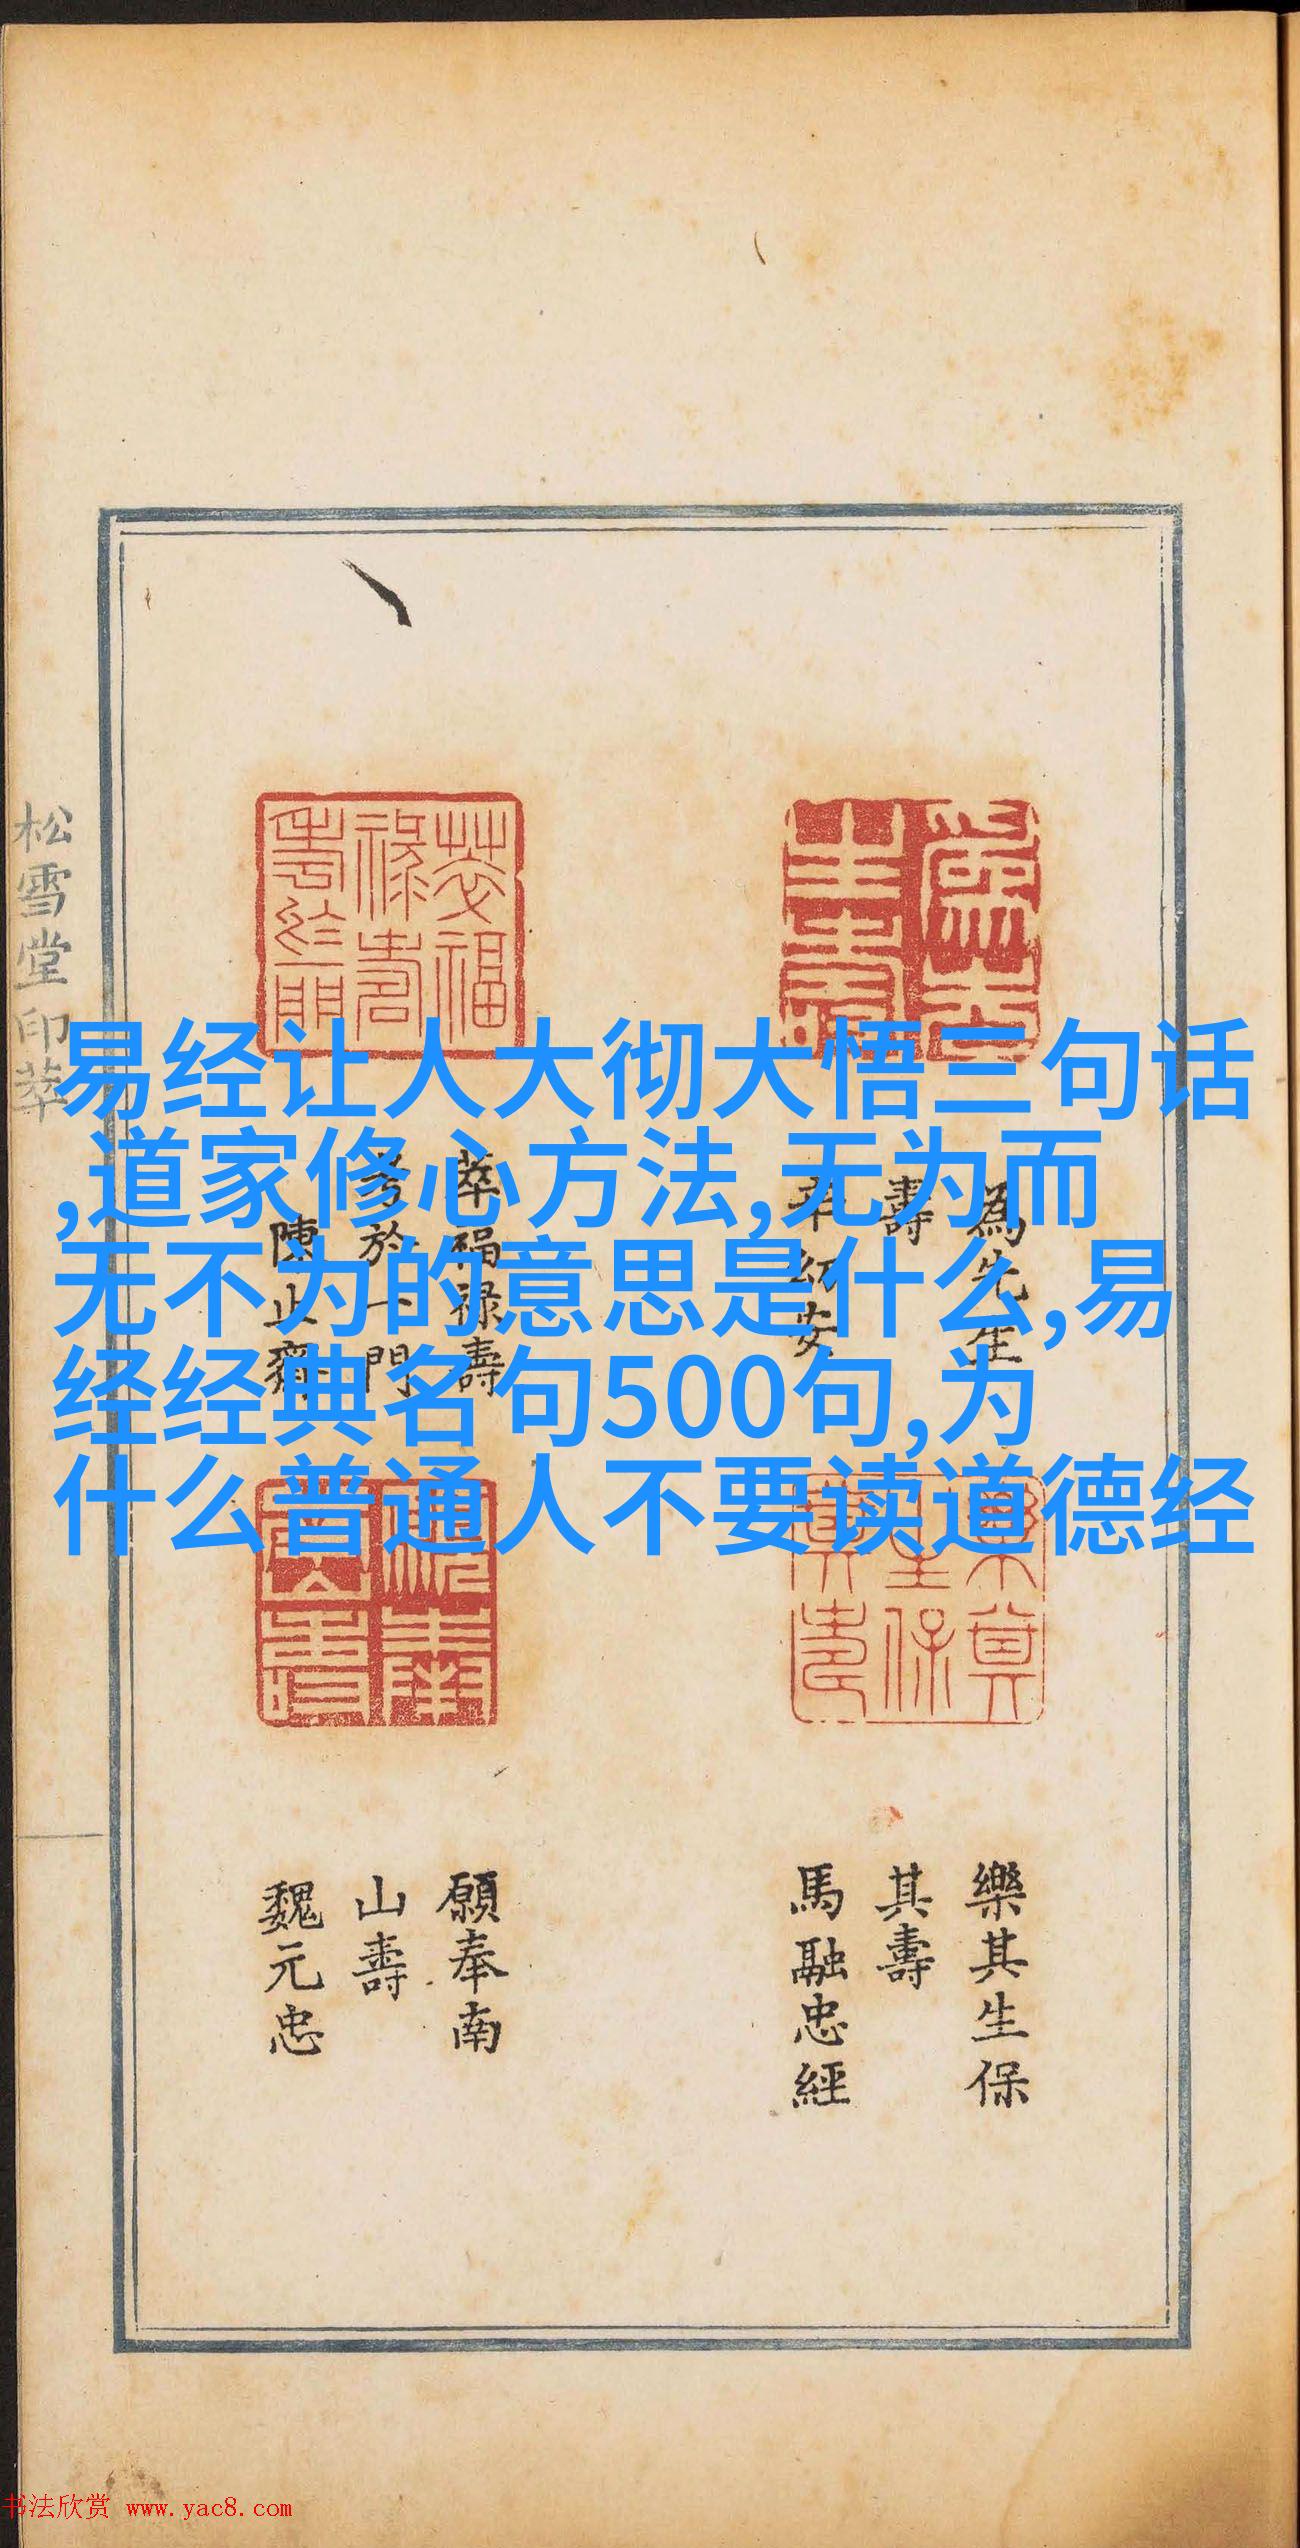 易经让人大彻大悟三句话
,道家修心方法,无为而
无不为的意思是什么,易
经经典名句500句,为
什么普通人不要读道德经
松雪堂印萃
為先生
壽
辛幼安
萃福祿壽
考於一門
陳止齋
樂其生保
其壽
馬融忠經
願奉南
山壽
魏元忠
书法欣赏 www.yac8.com